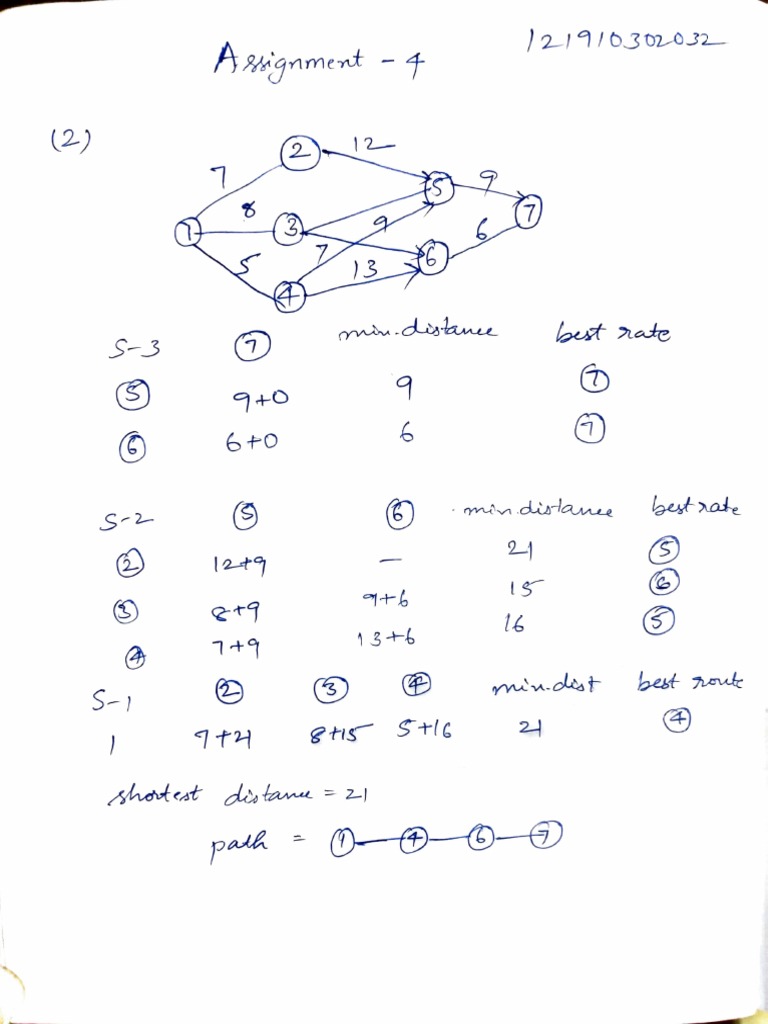 Assignment - 4
121910302032
(2)
7
2
12
5
9
7
1
8
3
9
6
7
6
5
4
13
S-3 7 min.distance best rate
5 9+0 9 7
6 6+0 6 7
S-2 5 6 min distance best rate
2 12+9 — 21 5
3 8+9 9+6 15 6
4 7+9 13+6 16 5
S-1 2 3 4 min.dist best route
1 7+21 8+15 5+16 21 4
shortest distance = 21
path = 1 — 4 — 6 — 7